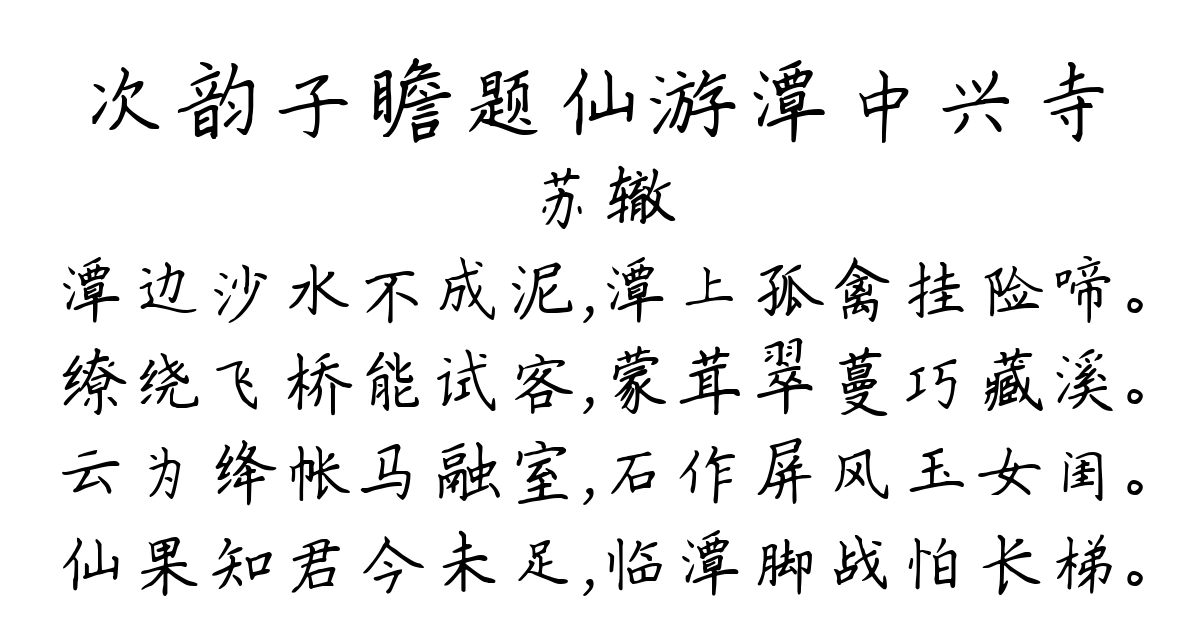 次韵子瞻题仙游潭中兴寺
苏辙
潭边沙水不成泥,潭上孤禽挂险啼。
缭绕飞桥能试客,蒙茸翠蔓巧藏溪。
云为绛帐马融室,石作屏风玉女闺。
仙果知君今未足,临潭脚战怕长梯。